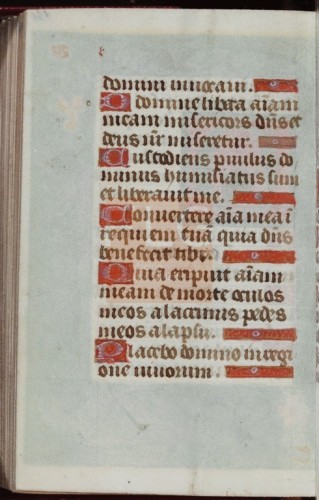 domini invocavi.
O domine libera aĩam
meam misericors dñs et
deus nr̃ miseretur.
Custodiens pvulos do
minus humiliatus sum
et liberavit me.
Convertere aĩa mea ĩ
requiem tuã quia dñs
benefecit tibi.
Quia eripuit aĩam
meam de morte oculos
meos a lacrimis pedes
meos a lapsu.
Placebo domino in regi
one vivorum.